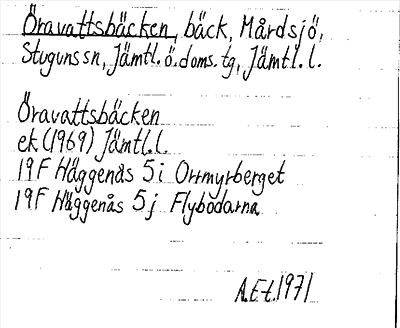 Öravattsbäcken, bäck, Mårdsjö,
Stuguns sn, Jämtl. ö. doms. tg, Jämtl. l.
Öravattsbäcken
ek (1969) Jämtl. l.
19F Häggenås 5i Orrmyrberget
19F Häggenås 5j Flybodarna
A.E-t. 1971